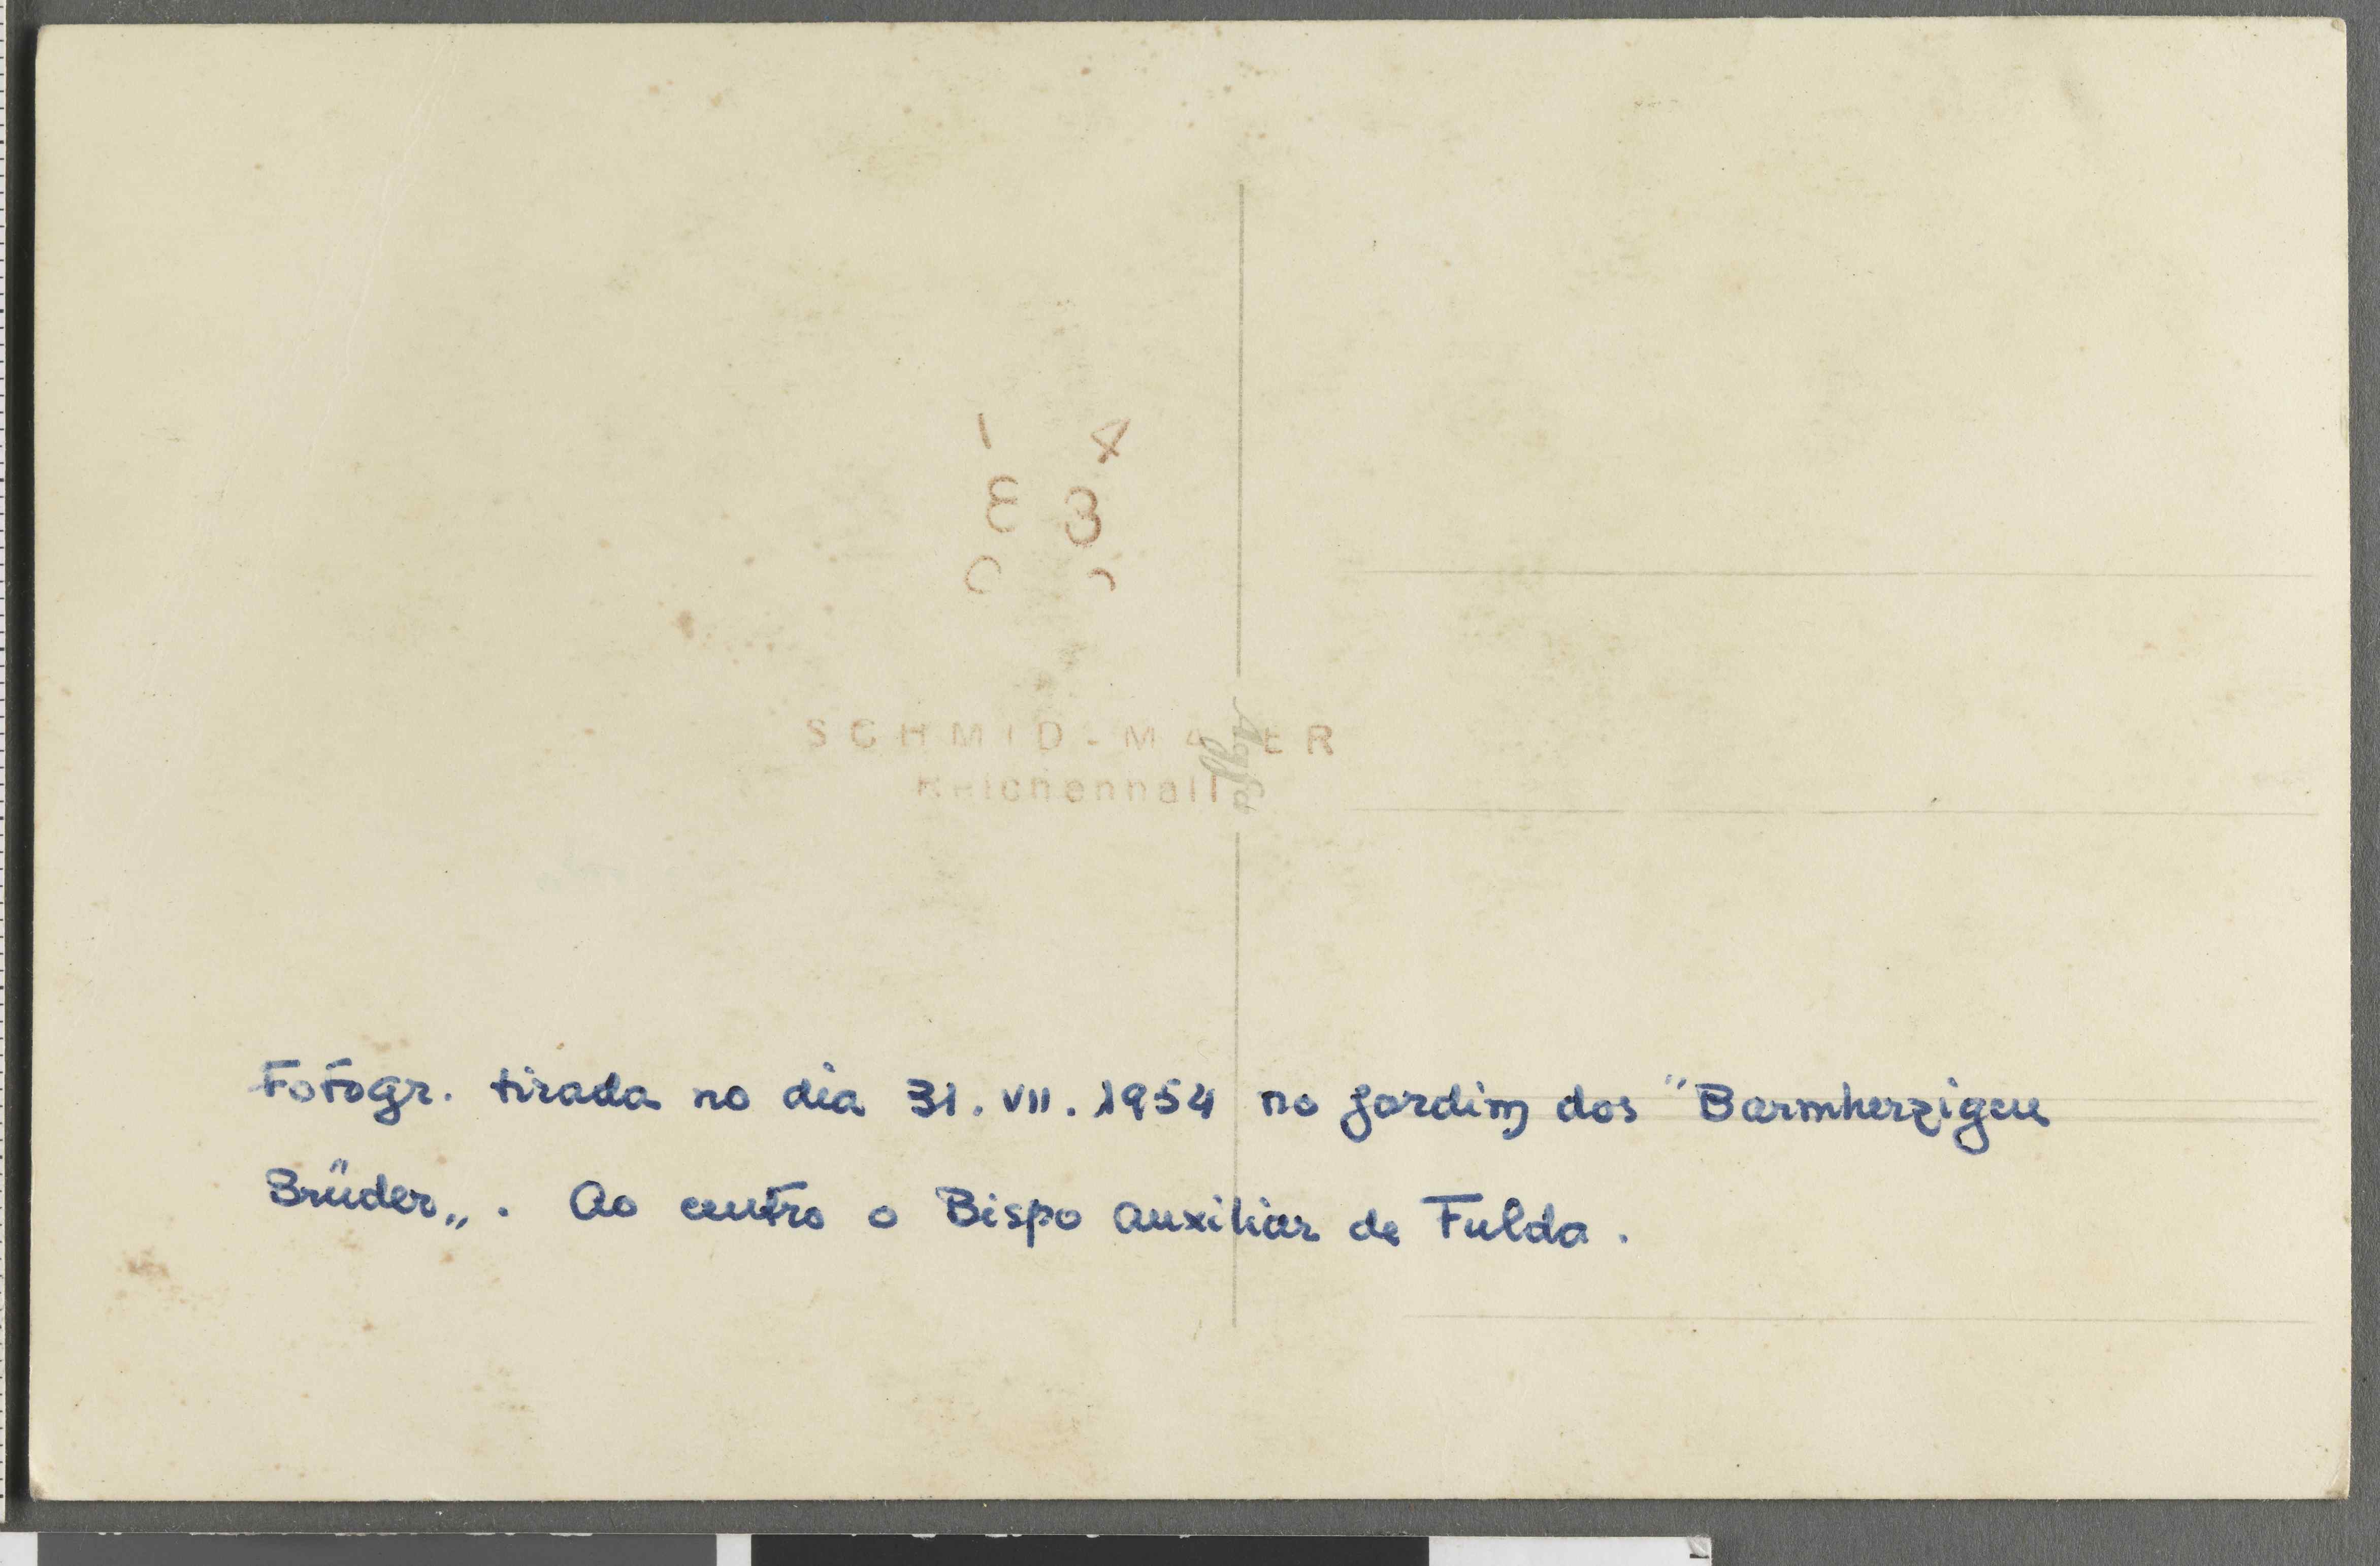 SCHMID-MAIER
Reichenhall
Agfa
Fotogr. tirada no dia 31. VII. 1954 no jardim dos "Barmherzigen
Brüder„. Ao centro o Bispo auxiliar de Fulda.